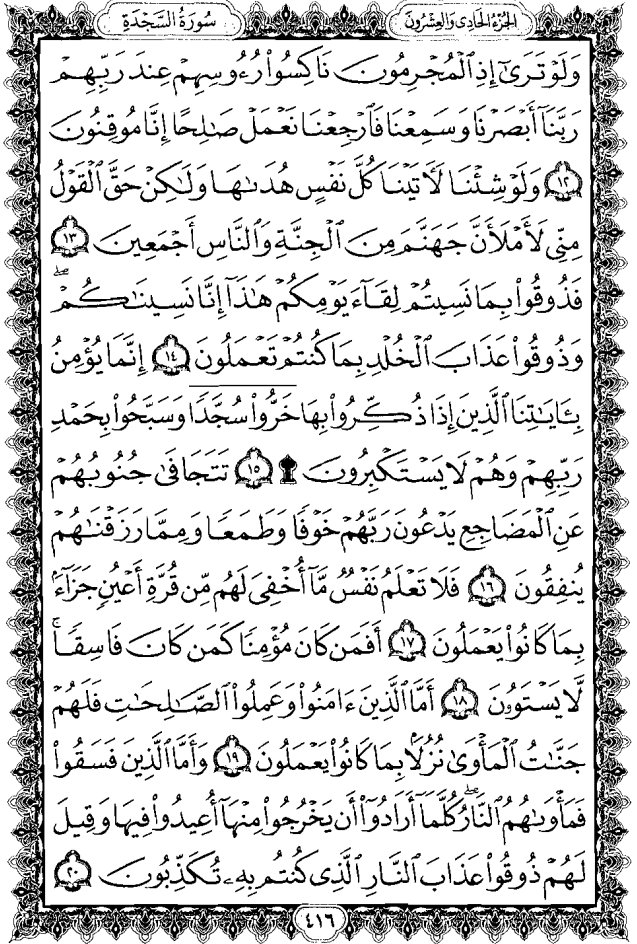 سُورَةُ السَّجْدَةِ الجُزْءُ الحَادِى وَالعِشْرُونَ
وَلَوْ تَرَىٰٓ إِذِ ٱلْمُجْرِمُونَ نَاكِسُوا۟ رُءُوسِهِمْ عِندَ رَبِّهِمْ
رَبَّنَآ أَبْصَرْنَا وَسَمِعْنَا فَٱرْجِعْنَا نَعْمَلْ صَـٰلِحًا إِنَّا مُوقِنُونَ
١٢ وَلَوْ شِئْنَا لَـَٔاتَيْنَا كُلَّ نَفْسٍ هُدَىٰهَا وَلَـٰكِنْ حَقَّ ٱلْقَوْلُ
مِنِّى لَأَمْلَأَنَّ جَهَنَّمَ مِنَ ٱلْجِنَّةِ وَٱلنَّاسِ أَجْمَعِينَ ١٣
فَذُوقُوا۟ بِمَا نَسِيتُمْ لِقَآءَ يَوْمِكُمْ هَـٰذَآ إِنَّا نَسِينَـٰكُمْ ۖ
وَذُوقُوا۟ عَذَابَ ٱلْخُلْدِ بِمَا كُنتُمْ تَعْمَلُونَ ١٤ إِنَّمَا يُؤْمِنُ
بِـَٔايَـٰتِنَا ٱلَّذِينَ إِذَا ذُكِّرُوا۟ بِهَا خَرُّوا۟ سُجَّدًا وَسَبَّحُوا۟ بِحَمْدِ
رَبِّهِمْ وَهُمْ لَا يَسْتَكْبِرُونَ ۩ ١٥ تَتَجَافَىٰ جُنُوبُهُمْ
عَنِ ٱلْمَضَاجِعِ يَدْعُونَ رَبَّهُمْ خَوْفًا وَطَمَعًا وَمِمَّا رَزَقْنَـٰهُمْ
يُنفِقُونَ ١٦ فَلَا تَعْلَمُ نَفْسٌ مَّآ أُخْفِىَ لَهُم مِّن قُرَّةِ أَعْيُنٍ جَزَآءًۢ
بِمَا كَانُوا۟ يَعْمَلُونَ ١٧ أَفَمَن كَانَ مُؤْمِنًا كَمَن كَانَ فَاسِقًا ۚ
لَّا يَسْتَوُۥنَ ١٨ أَمَّا ٱلَّذِينَ ءَامَنُوا۟ وَعَمِلُوا۟ ٱلصَّـٰلِحَـٰتِ فَلَهُمْ
جَنَّـٰتُ ٱلْمَأْوَىٰ نُزُلًۢا بِمَا كَانُوا۟ يَعْمَلُونَ ١٩ وَأَمَّا ٱلَّذِينَ فَسَقُوا۟
فَمَأْوَىٰهُمُ ٱلنَّارُ ۖ كُلَّمَآ أَرَادُوٓا۟ أَن يَخْرُجُوا۟ مِنْهَآ أُعِيدُوا۟ فِيهَا وَقِيلَ
لَهُمْ ذُوقُوا۟ عَذَابَ ٱلنَّارِ ٱلَّذِى كُنتُم بِهِۦ تُكَذِّبُونَ ٢٠
٤١٦